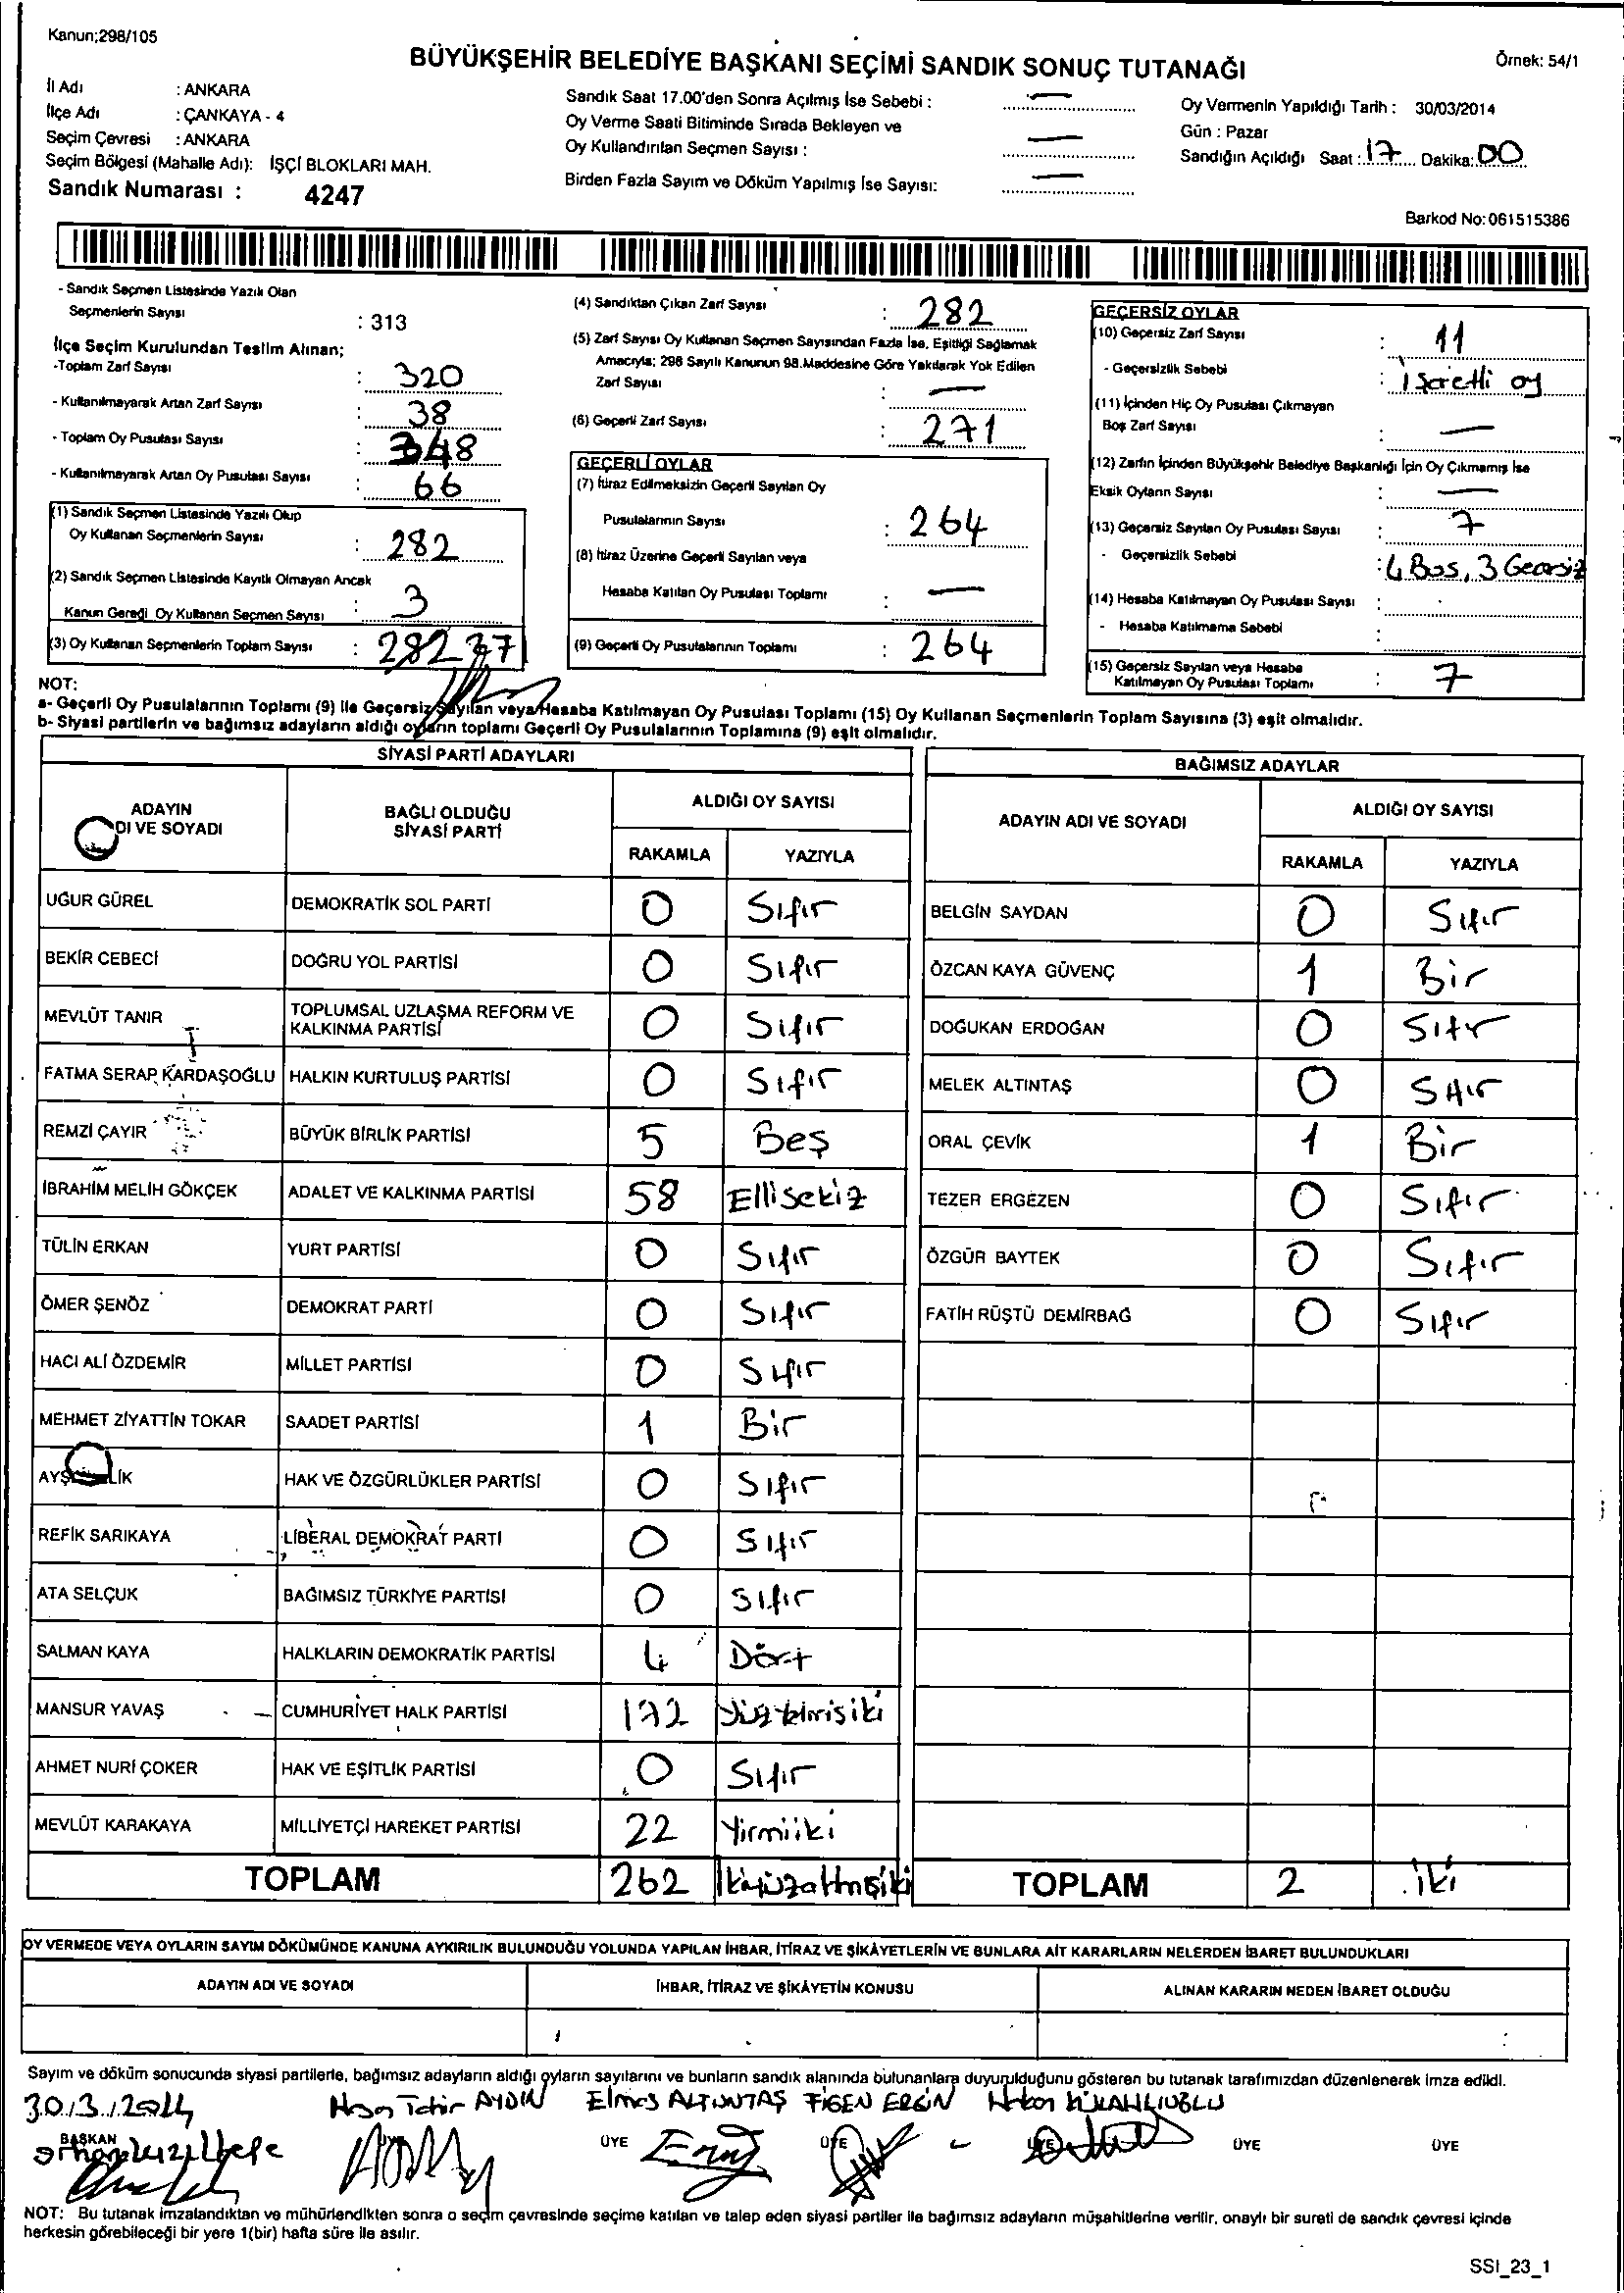 Kanun;298/105
BÜYÜKŞEHİR BELEDİYE BAŞKANI SEÇİMİ SANDIK SONUÇ TUTANAĞI
Örnek: 54/1
İl Adı : ANKARA
İlçe Adı : ÇANKAYA - 4
Seçim Çevresi : ANKARA
Seçim Bölgesi (Mahalle Adı): İŞÇİ BLOKLARI MAH.
Sandık Numarası : 4247
Sandık Saat 17.00'den Sonra Açılmış İse Sebebi : —
Oy Verme Saati Bitiminde Sırada Bekleyen ve
Oy Kullandırılan Seçmen Sayısı : —
Birden Fazla Sayım ve Döküm Yapılmış İse Sayısı: —
Oy Vermenin Yapıldığı Tarih : 30/03/2014
Gün : Pazar
Sandığın Açıldığı Saat : 17 Dakika: 00
Barkod No: 061515386
- Sandık Seçmen Listesinde Yazılı Olan
Seçmenlerin Sayısı : 313
İlçe Seçim Kurulundan Teslim Alınan;
-Toplam Zarf Sayısı : 320
- Kullanılmayarak Artan Zarf Sayısı : 38
- Toplam Oy Pusulası Sayısı : 348
- Kullanılmayarak Artan Oy Pusulası Sayısı : 66
(1) Sandık Seçmen Listesinde Yazılı Olup
Oy Kullanan Seçmenlerin Sayısı : 282
(2) Sandık Seçmen Listesinde Kayıtlı Olmayan Ancak
Kanun Gereği Oy Kullanan Seçmen Sayısı : 3
(3) Oy Kullanan Seçmenlerin Toplam Sayısı : 282
(4) Sandıktan Çıkan Zarf Sayısı : 282
(5) Zarf Sayısı Oy Kullanan Seçmen Sayısından Fazla İse, Eşitliği Sağlamak
Amacıyla; 298 Sayılı Kanunun 98.Maddesine Göre Yakılarak Yok Edilen
Zarf Sayısı : —
(6) Geçerli Zarf Sayısı : 271
GEÇERLİ OYLAR
(7) İtiraz Edilmeksizin Geçerli Sayılan Oy
Pusulalarının Sayısı : 264
(8) İtiraz Üzerine Geçerli Sayılan veya
Hesaba Katılan Oy Pusulası Toplamı : —
(9) Geçerli Oy Pusulalarının Toplamı : 264
GEÇERSİZ OYLAR
(10) Geçersiz Zarf Sayısı : 11
- Geçersizlik Sebebi : işaretli oy
(11) İçinden Hiç Oy Pusulası Çıkmayan
Boş Zarf Sayısı : —
(12) Zarfın İçinden Büyükşehir Belediye Başkanlığı İçin Oy Çıkmamış İse
Eksik Oyların Sayısı : —
(13) Geçersiz Sayılan Oy Pusulası Sayısı : 7
- Geçersizlik Sebebi : 4 Bos, 3 Gecrsiz
(14) Hesaba Katılmayan Oy Pusulası Sayısı :
- Hesaba Katılmama Sebebi :
(15) Geçersiz Sayılan veya Hesaba
Katılmayan Oy Pusulası Toplamı : 7
NOT:
a- Geçerli Oy Pusulalarının Toplamı (9) ile Geçersiz Sayılan veya Hesaba Katılmayan Oy Pusulası Toplamı (15) Oy Kullanan Seçmenlerin Toplam Sayısına (3) eşit olmalıdır.
b- Siyasi partilerin ve bağımsız adayların aldığı oyların toplamı Geçerli Oy Pusulalarının Toplamına (9) eşit olmalıdır.
SİYASİ PARTİ ADAYLARI
ADAYIN
DI VE SOYADI
BAĞLI OLDUĞU
SİYASİ PARTİ
ALDIĞI OY SAYISI
RAKAMLA YAZIYLA
UĞUR GÜREL DEMOKRATİK SOL PARTİ 0 Sıfır
BEKİR CEBECİ DOĞRU YOL PARTİSİ 0 Sıfır
MEVLÜT TANIR TOPLUMSAL UZLAŞMA REFORM VE
KALKINMA PARTİSİ 0 Sıfır
FATMA SERAP KARDAŞOĞLU HALKIN KURTULUŞ PARTİSİ 0 Sıfır
REMZİ ÇAYIR BÜYÜK BİRLİK PARTİSİ 5 Beş
İBRAHİM MELİH GÖKÇEK ADALET VE KALKINMA PARTİSİ 58 Ellisekiz
TÜLİN ERKAN YURT PARTİSİ 0 Sıfır
ÖMER ŞENÖZ DEMOKRAT PARTİ 0 Sıfır
HACI ALİ ÖZDEMİR MİLLET PARTİSİ 0 Sıfır
MEHMET ZİYATTİN TOKAR SAADET PARTİSİ 1 Bir
HAK VE ÖZGÜRLÜKLER PARTİSİ 0 Sıfır
REFİK SARIKAYA LİBERAL DEMOKRAT PARTİ 0 Sıfır
ATA SELÇUK BAĞIMSIZ TÜRKİYE PARTİSİ 0 Sıfır
SALMAN KAYA HALKLARIN DEMOKRATİK PARTİSİ 4 Dört
MANSUR YAVAŞ CUMHURİYET HALK PARTİSİ 172
AHMET NURİ ÇOKER HAK VE EŞİTLİK PARTİSİ 0 Sıfır
MEVLÜT KARAKAYA MİLLİYETÇİ HAREKET PARTİSİ 22 Yirmiiki
TOPLAM 262 İkiyüzaltmışiki
BAĞIMSIZ ADAYLAR
ADAYIN ADI VE SOYADI
ALDIĞI OY SAYISI
RAKAMLA YAZIYLA
BELGİN SAYDAN 0 Sıfır
ÖZCAN KAYA GÜVENÇ 1 Bir
DOĞUKAN ERDOĞAN 0 Sıfır
MELEK ALTINTAŞ 0 Sıfır
ORAL ÇEVİK 1 Bir
TEZER ERGEZEN 0 Sıfır
ÖZGÜR BAYTEK 0 Sıfır
FATİH RÜŞTÜ DEMİRBAĞ 0 Sıfır
TOPLAM 2 iki
OY VERMEDE VEYA OYLARIN SAYIM DÖKÜMÜNDE KANUNA AYKIRILIK BULUNDUĞU YOLUNDA YAPILAN İHBAR, İTİRAZ VE ŞİKÂYETLERİN VE BUNLARA AİT KARARLARIN NELERDEN İBARET BULUNDUKLARI
ADAYIN ADI VE SOYADI İHBAR, İTİRAZ VE ŞİKÂYETİN KONUSU ALINAN KARARIN NEDEN İBARET OLDUĞU
Sayım ve döküm sonucunda siyasi partilerle, bağımsız adayların aldığı oyların sayılarını ve bunların sandık alanında bulunanlara duyurulduğunu gösteren bu tutanak tarafımızdan düzenlenerek imza edildi.
30/3/2014 Hasan Tahir AYDIN Elmas ALTUNTAŞ FİGEN ERGİN Hakan
BAŞKAN ÜYE ÜYE ÜYE ÜYE ÜYE
Orhan Kızıltepe
NOT: Bu tutanak imzalandıktan ve mühürlendikten sonra o seçim çevresinde seçime katılan ve talep eden siyasi partiler ile bağımsız adayların müşahitlerine verilir, onaylı bir sureti de sandık çevresi içinde
herkesin görebileceği bir yere 1(bir) hafta süre ile asılır.
SSI_23_1